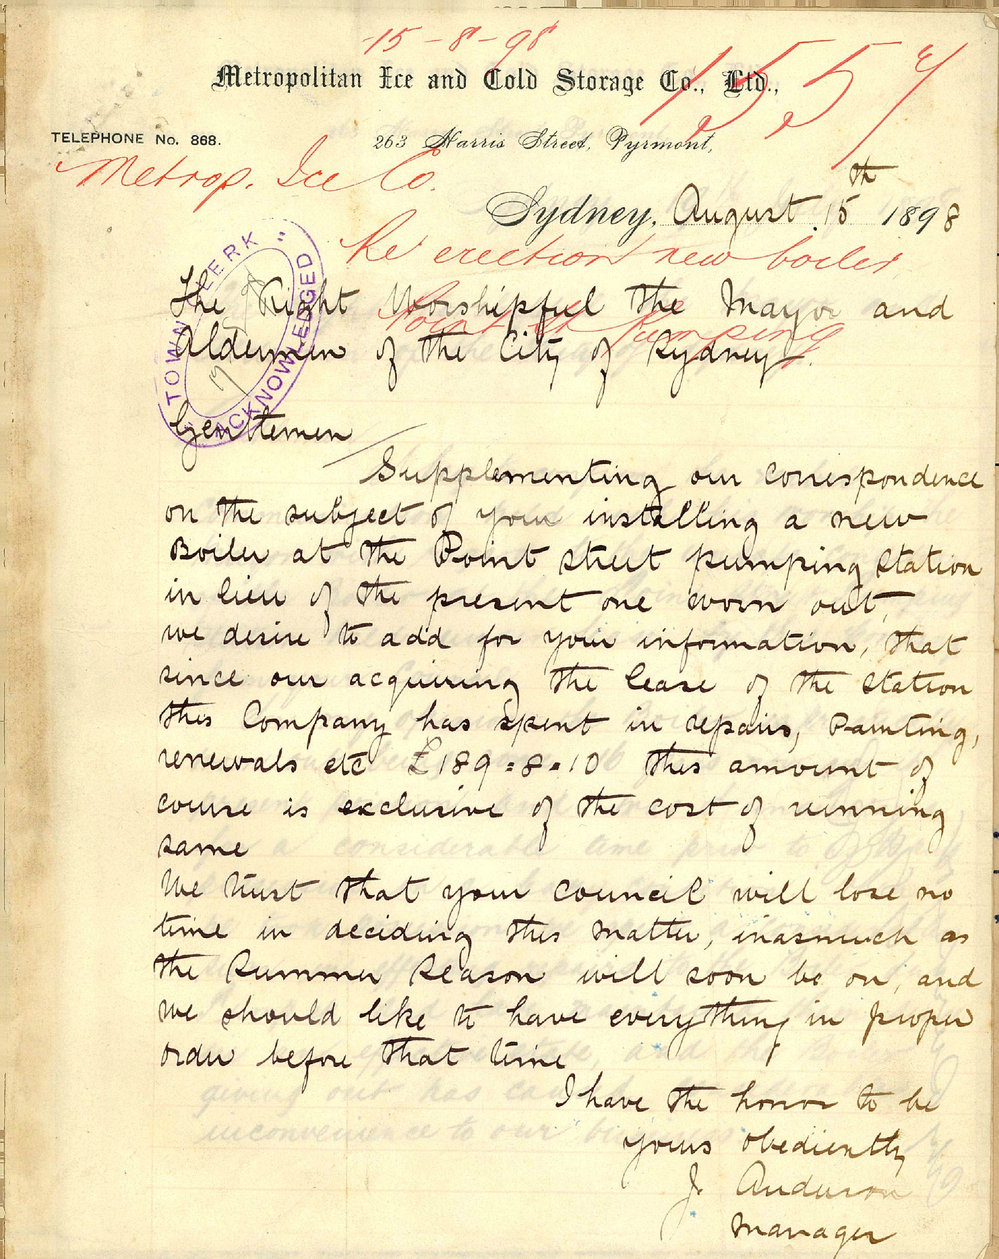 15-8-98
Metropolitan Ice and Cold Storage Co., Ltd.,
1557
TELEPHONE No. 868.
263 Harris Street, Pyrmont,
Metrop. Ice Co.
Sydney, August 15th 1898
Re erection new boiler
Point St Pumping
TOWN CLERK
ACKNOWLEDGED
The Right Worshipful the Mayor and
Aldermen of the City of Sydney.
Gentlemen
Supplementing our correspondence
on the subject of your installing a new
Boiler at the Point street pumping station
in lieu of the present one worn out,
we desire to add for your information, that
since our acquiring the lease of the station
this Company has spent in repairs, Painting,
renewals etc £189-8-10 this amount of
course is exclusive of the cost of running
same
We trust that your council will lose no
time in deciding this matter, inasmuch as
the Summer Season will soon be on, and
we should like to have everything in proper
order before that time
I have the honor to be
yours obediently
J. Anderson
Manager